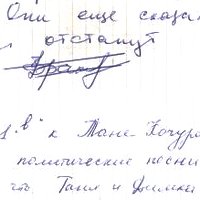 Они еще сказа
отстанут
1 "в" к Тане-Кочура
политические песни
что Таня и Димка